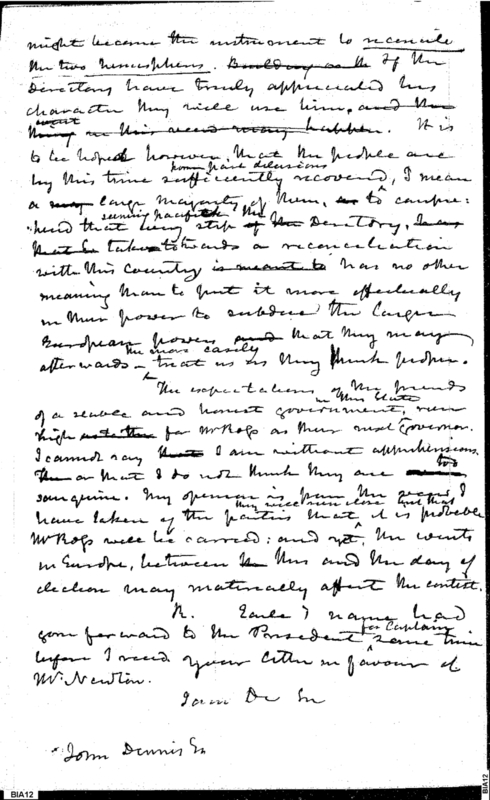 might become the instrument to reconcile
the two hemispheres. If the
Directory have truly appreciated his
character they will use him, and the
event in this need may happen. It is
to be hoped however, that the people are
by this time from past delusions sufficiently recovered, I mean
a large majority of them, to compre-
hend that every seeming pacific step of the Directory,
takes towards a reconciliation
with this country is meant to has no other
meaning than to put it more effectually
in their power to subdue the larger
European powers and that they may
afterwards the more easily treat us as they think proper.
The expectations of the friends
of a stable and honest government, in this State run
high for Mr Ross as their next Governor.
I cannot say that I am without apprehensions
or that I do not think they are too
sanguine. My opinion is from the I
have taken of the parties that they will run close but that it is probable
Mr Ross will be carried: and yet, the events
in Europe, between this and the day of
election may materially affect the contest.
name had
gone forward to the President for Captain some time
before I received your letter in favour of
Mr. Newton.
I am Dr Sir
John Dennis Esq
BIA12
BIA12